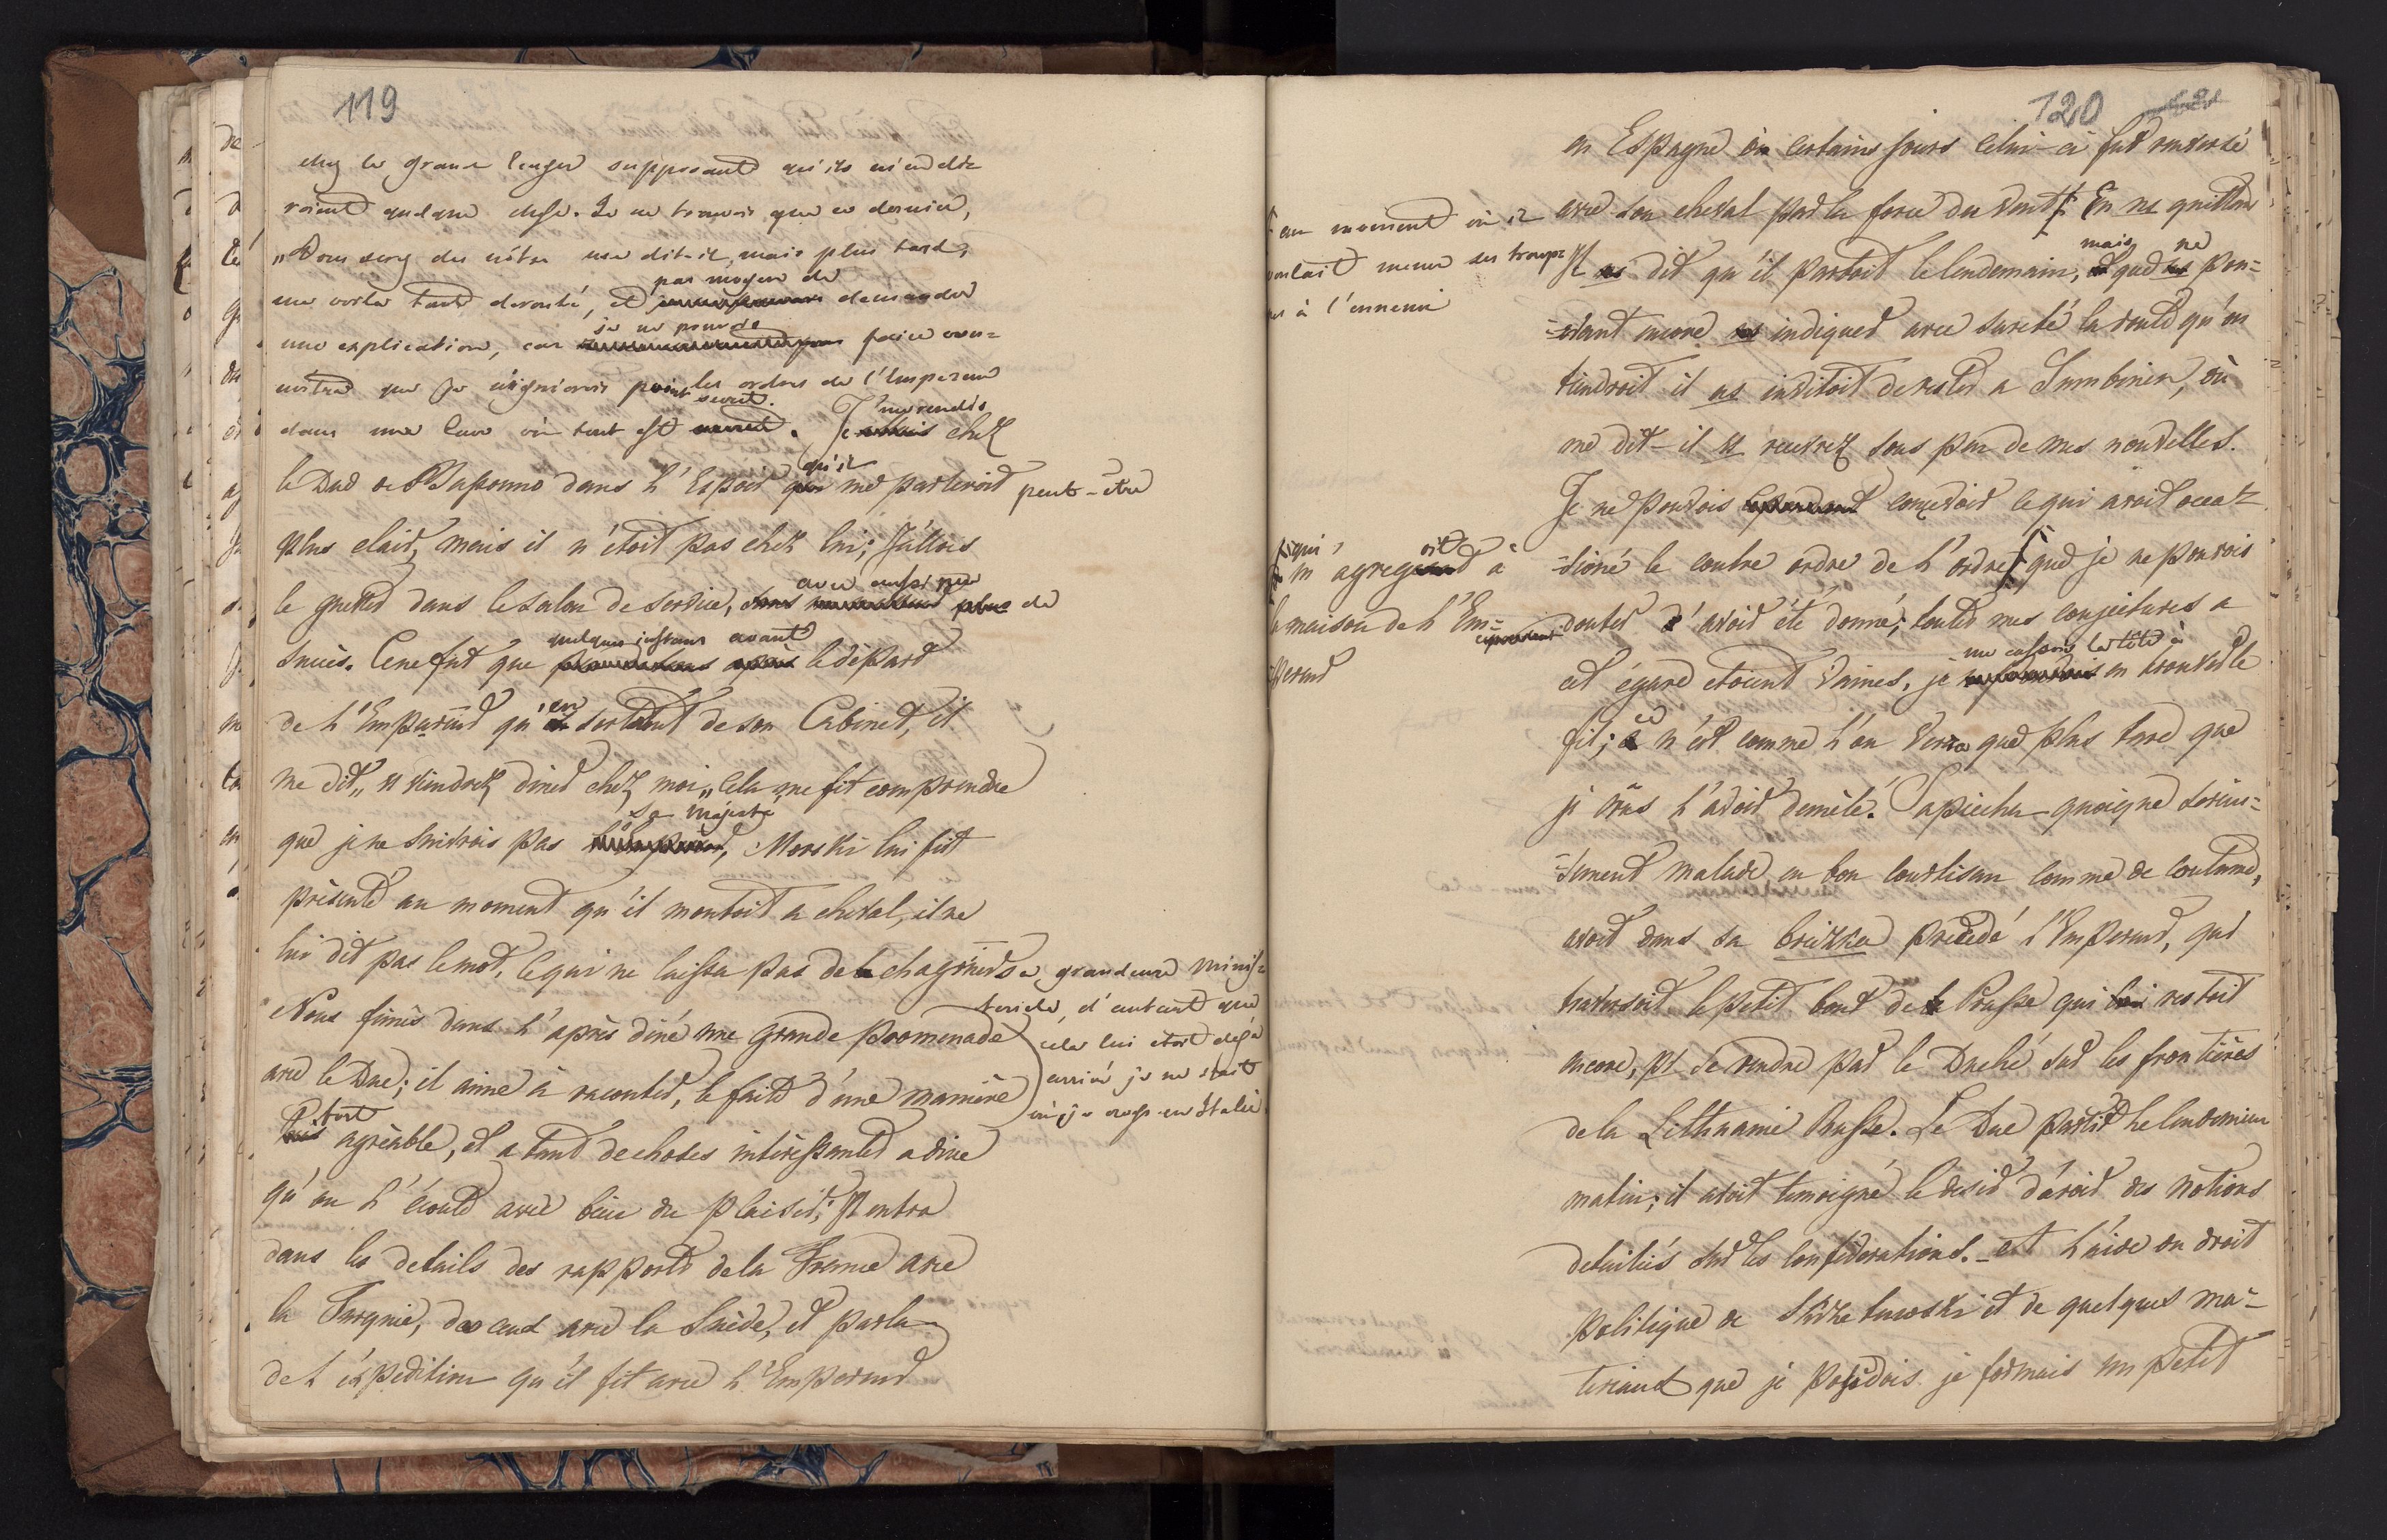 119
chez le grand Ecuyer supposant qu'ils m'en di-
roient quelque chose. Je ne trouvois que ce dernier,
„Vous serez des nôtres me dit-il, mais plus tard,
me voila tout derouté, et pas moyen de demander
une explication, car je ne pouvois faire con-
noitre que je n'ignorois point les ordres de l'Empereur
dans une Cour où tout est secret. Je me rendis chez
le Duc de Bassano dans l'Espoir qu'il me parleroit peut-etre
plus clair, mais il n'étoit pas chez lui; J'allois
le guetter dans le Salon de Service, avec aussi peu de
succès. Ce ne fut que quelques instans avant le départ
de l'Empereur qu'en sortant de son Cabinet, il
me dit „ vs viendrez diner chez moi „ Cela me fit comprendre
que je ne suivrois pas Sa Majesté, Morski lui fut
présenté au moment qu'il montoit a cheval, il ne
lui dit pas le mot, ce qui ne laissa pas de chagriner Sa grandeur Minis-
terielle, d'autant que
cela lui etoit deja
arrivé je ne sait
où je crois en Italie.
Nous fimes dans l'après diné une grande promenade
avec le Duc; il aime à raconter, le fait d'une manière
fort agréable, et a tant de choses intéressantes a dire
qu'on l'écoute avec bien du plaisir; Il entra
dans les details des rapports de la France avec
la Turquie, de ceux avec la Suède, et parla
de l'éxpedition qu'il fit avec l'Empereur
120
en Espagne où certains jours celui-ci fut renversé
avec son cheval par la force du vent au moment où il
vouloit mener ses troupes
à l'ennemi. En ns quittant
Il dit qu'il partoit le lendemain, mais que ne pou-
-vant encore ns indiquer avec sureté la route qu'on
tiendroit il ns invitoit de rester a Gumbinen, où
me dit-il vs recevrez sous peu de mes nouvelles.
Je ne pouvois concevoir ce qui avoit occa-
-sioné le contre ordre de l'ordre qui
m'agregeoit à
la maison de l'Em-
-pereur que je ne pouvois
douter cependant d'avoir été donné; toutes mes conjectures a
cet égard etoient vaines, je me cassois la tête à en trouver le
fil; ce n'est comme l'on verra que plus tard que
je crûs l'avoir demêlé. Lapiecha quoique serieu-
-sement malade en bon courtisan comme de coutume,
avoit dans sa briczka précédé l'Empereur, qui
traversoit le petit bout de Prusse qui restoit
encore, pr se rendre par le Duché sur les frontières
de la Lithuanie Russe. Le Duc partit le lendemain
matin; il avoit temoigné le desir d'avoir des notions
detaillés sur les Confederations. – et l'aide du droit
politique de Skrzetuwski et de quelques ma-
teriaux que je possedois je formais un petit